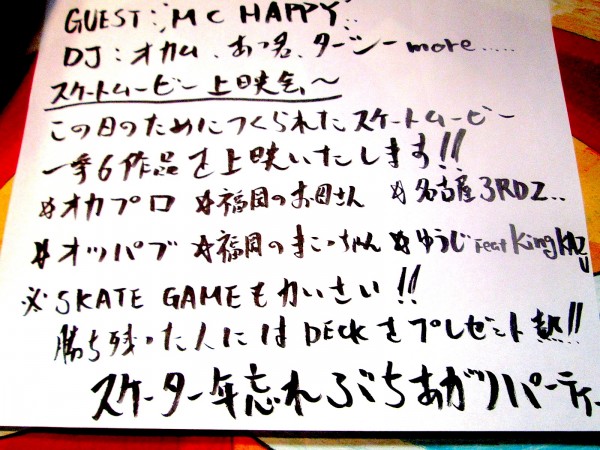 GUEST: MC HAPPY
DJ:オカム、あつ名、ターシーmore.....
スケートムービー上映会〜
この日のためにつくられたスケートムービー
一挙6作品を上映いたします!!
☆オカプロ ☆福岡のお母さん ☆名古屋3RDZ..
☆オッパブ ☆福岡のまこっちゃん ☆ゆうじ Feat King KAZU
※SKATE GAMEもかいさい!!
勝ち残った人にはDECKをプレゼント 熱!!
スケーター年忘れぶちあがりパーティ